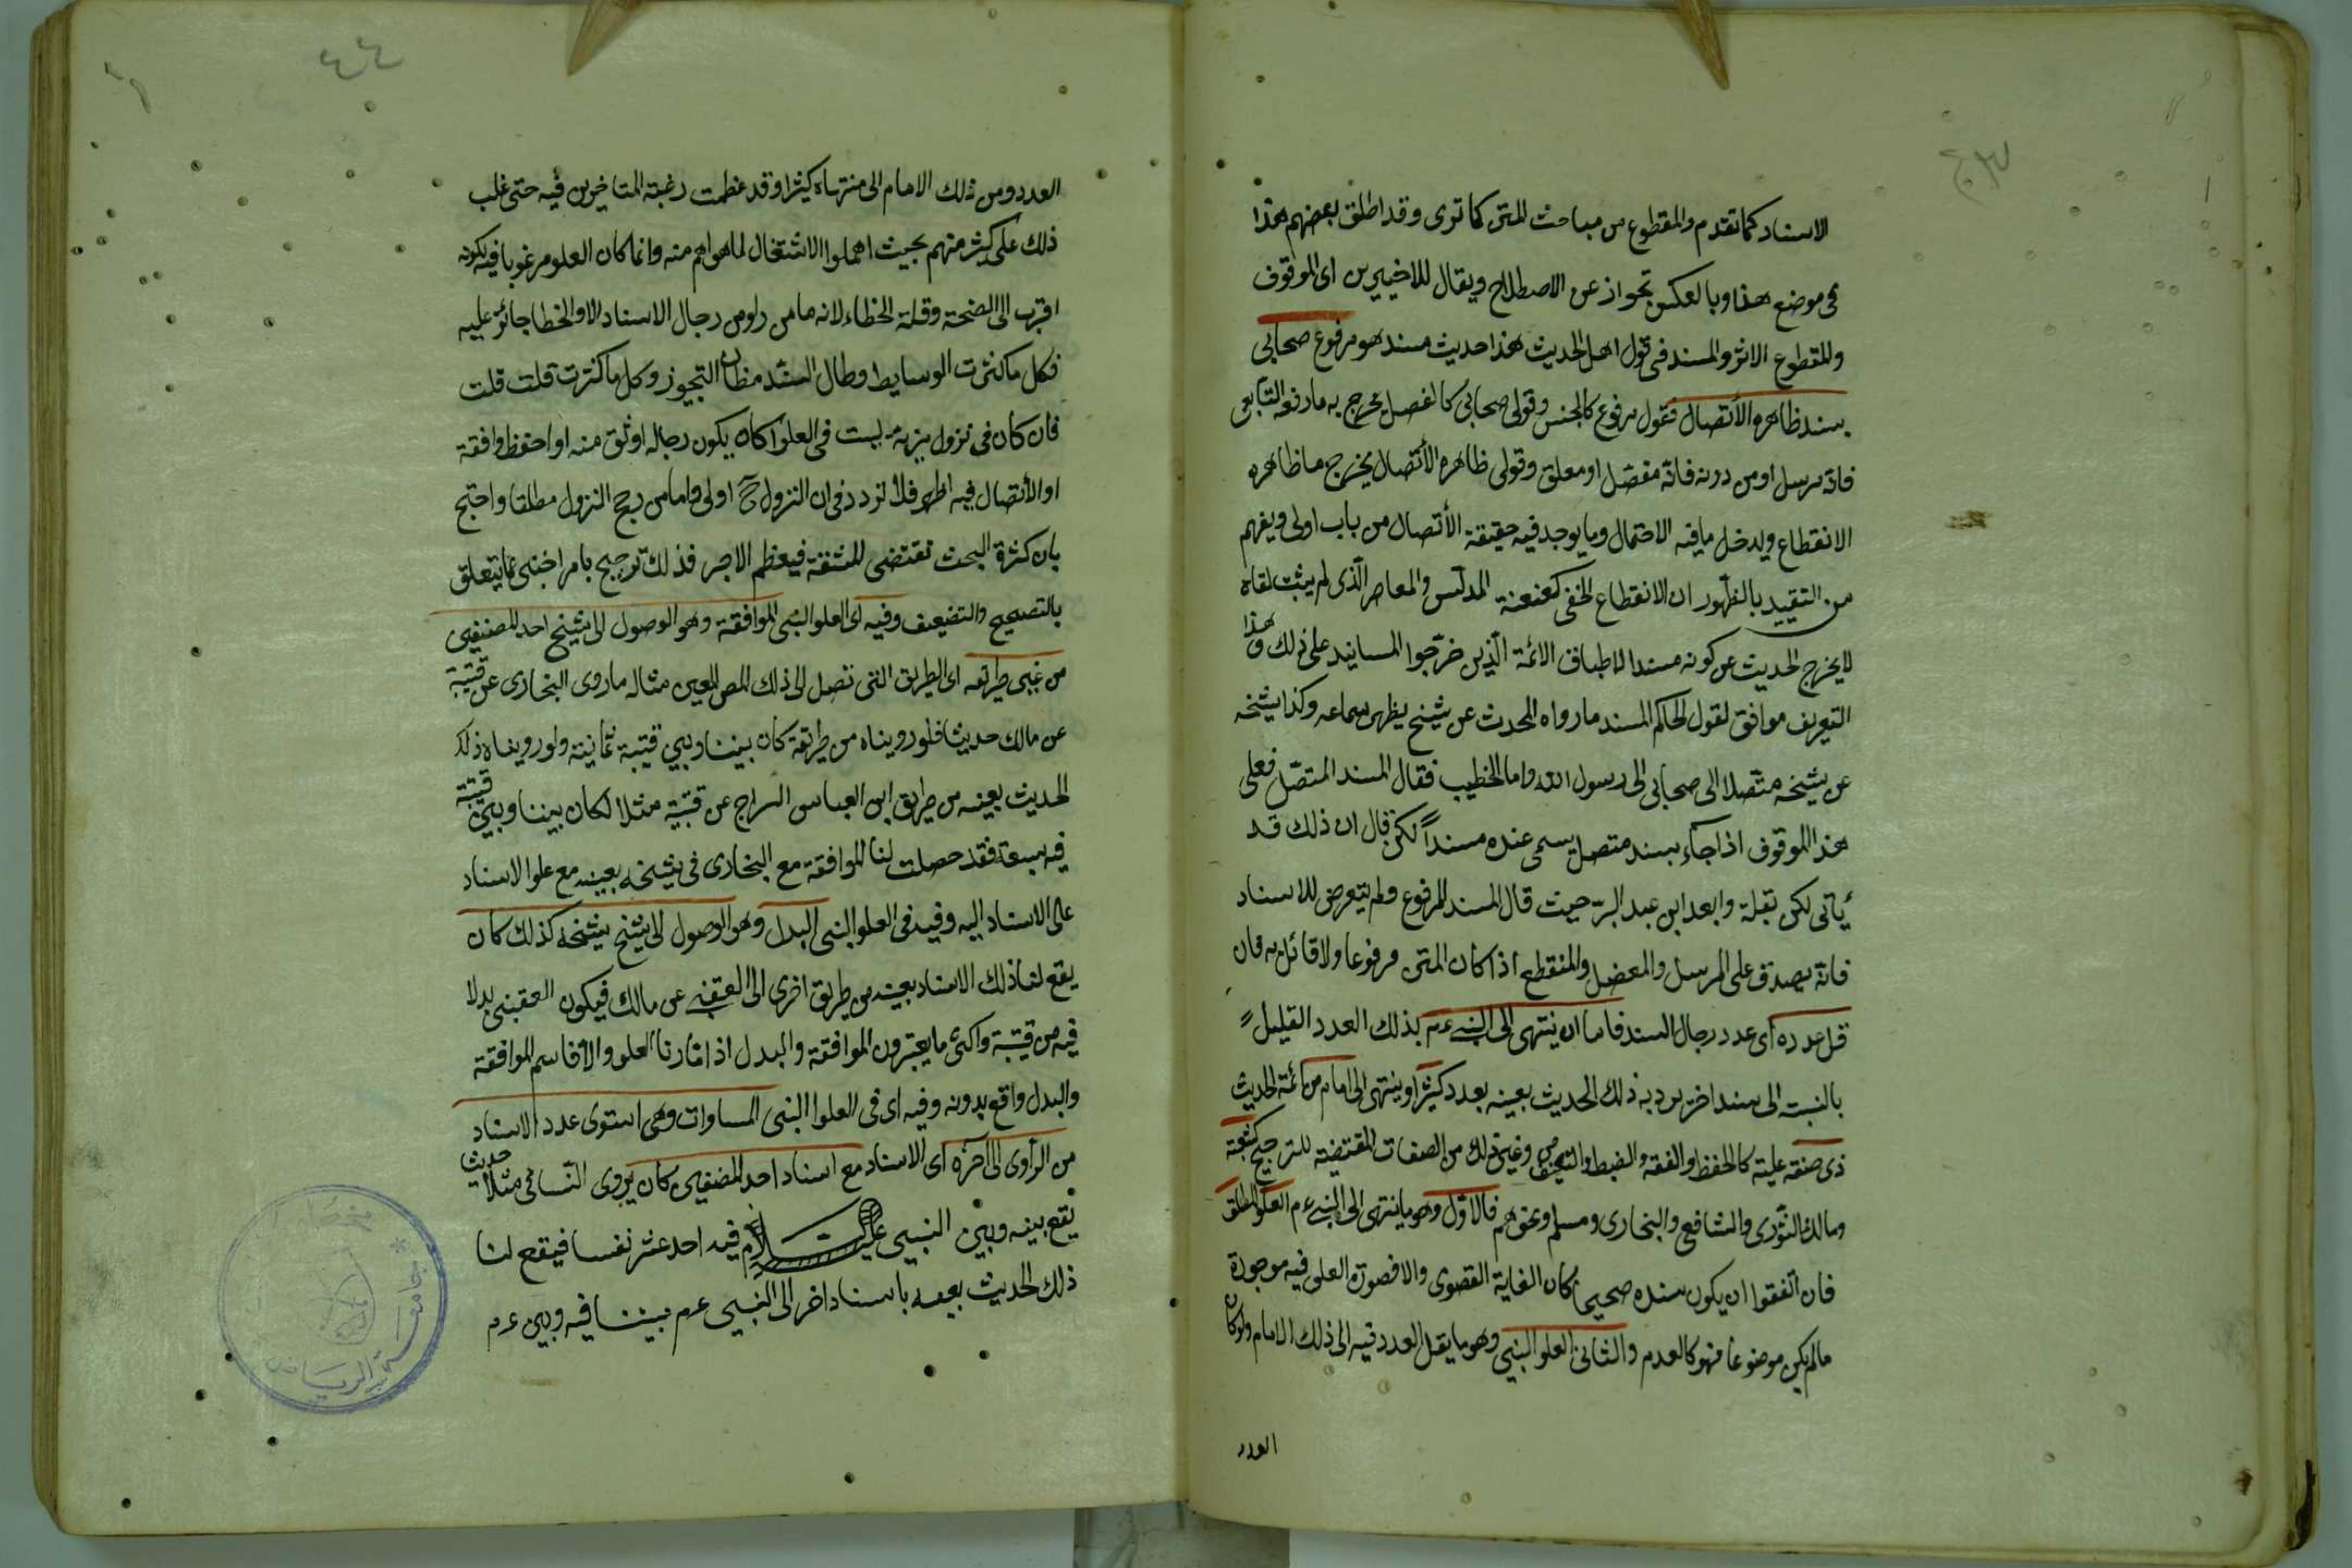 الاسناد كما تقدم والمقطوع من مباحث المتن كما ترى وقد اطلق بعضهم هذا
فى موضع هذا وبالعكس تجوازا عن الاصطلاح ويقال للاخيرين اى الموقوف
والمقطوع الاثر والمسند فى قول اهل الحديث هذا حديث مسند هو مرفوع صحابى
بسند ظاهره الأتصال فقول مرفوع كالجنس وقولى صحابى كالفصل يخرج به ما رفعه التابعى
فانه مرسل او من دونه فانه مفضل او معلق وقولى ظاهره الأتصال يخرج ما ظاهره
الانقطاع ويدخل ما فيه الاحتمال وما يوجد فيه حقيقة الأتصال من باب اولى ويفهم
من التقييد بالظهور ان الانقطاع الخفى كعنعنة المدلس والمعاصر الذى لم يثبت لقاه
لا يخرج الحديث عن كونه مسندا لاطباق الائمة الذين خرّجوا المسانيد على ذلك وهذا
التعريف موافق لقول الحاكم المسند ما رواه المحدث عن شيخ يظهر سماعه وكذا شيخه
عن شيخه متصلا الى صحابى الى رسول الله واما الخطيب فقال المسند المتصل فعلى
هذا الموقوف اذا جآء بسند متصل يسمى عنده مسنداً لكن قال ان ذلك قد
يأتى لكن بقلة وابعد ابن عبد البرّ حيث قال المسند المرفوع ولم يتعرض للاسناد
فانه يصدق على المرسل والمعضل والمنقطع اذا كان المتن مرفوعا ولا قائل به فان
قل عدده اى عدد رجال السند فاما ان ينتهى الى النبى عم بذلك العدد القليل
بالنسبة الى سند اخر يرد به ذلك الحديث بعينه بعدد كثير او ينتهى الى امام من ائمة الحديث
ذى صفة علية كالحفظ والفقه والضبط والتصنيف وغير ذلك من الصفات المقتضية للترجيح كشعبة
ومالك والثورى والشافعى والبخارى ومسلم ونحوهم فالاول وهو ما ينتهى الى النبى عم العلو المطلق
فان اتفقوا ان يكون سنده صحيحا كان الغاية القصوى والا فصورة العلو فيه موجودة
مالم يكن موضوعا فهو كالعدم والثانى العلو النسبى وهو ما يقل العدد فيه الى ذلك الامام ولو كان
العدد
٤٤
العدد ومن ذلك الامام الى منتهاه كثيرا وقد عظمت رغبة المتاخرين فيه حتى غلب
ذلك على كثير منهم بحيث اهملوا الاشتغال لما هو اهم منه وانما كان العلو مرغوبا فيه لكونه
اقرب الى الصحة وقلة الخطاء لانه ما من راو من رجال الاسناد الا والخطا جائز عليه
فكل ما كثرت الوسايط وطال السند مظان التجويز وكل ما كثرت قلت قلت
فان كان فى نزول مزية ليست فى العلو كان يكون رجاله اوثق منه او احفظ او افقه
او الأتصال فيه اظهر فلا تردد فى ان النزول ح اولى واما من رجح النزول مطلقا واحتج
بان كثرة البحث تقتضى المشقة فيعظم الاجر فذلك ترجيح بامر اجنبى عما يتعلق
بالتصحيح والتضعيف وفيه اى العلو النسبى الموافقة وهو الوصول الى شيخ احد المصنفين
من غير طريقه اى الطريق التى تصل الى ذلك المص المعين مثاله ما روى البخارى عن قتيبة
عن مالك حديثا فلو رويناه من طريقه كان بيننا وبين قتيبة ثمانية ولو رويناه ذلك
الحديث بعينه من طريق ابن العباس السراج عن قتيبة مثلا لكان بيننا وبين قتيبة
فيه سبعة فقد حصلت لنا الموافقة مع البخارى فى شيخه بعينه مع علو الاسناد
على الاسناد اليه وفيه فى العلو النسبى البدل وهو الوصول الى شيخ شيخه كذلك كان
يقع لنا ذلك الاسناد بعينه من طريق اخرى الى العقنبى عن مالك فيكون العقبنى بدلا
فيه من قتيبة واكثر ما يعتبرون الموافقة والبدل اذا قارنا العلو والا فاسم الموافقة
والبدل واقع بدونه وفيه اى فى العلو النسبى المساوات وهى استوى عدد الاسناد
من الرأوى الى آخره اى الاسناد مع اسناد احد المصنفين كان يروى النسائى مثلا حديث
يقع بينه وبين النبى عليه السلام فيه احد عشر نفسا فيقع لنا
ذلك الحديث بعينه باسناد اخر الى النبى عم بيننا فيه وبين عم
جامعة الرياض